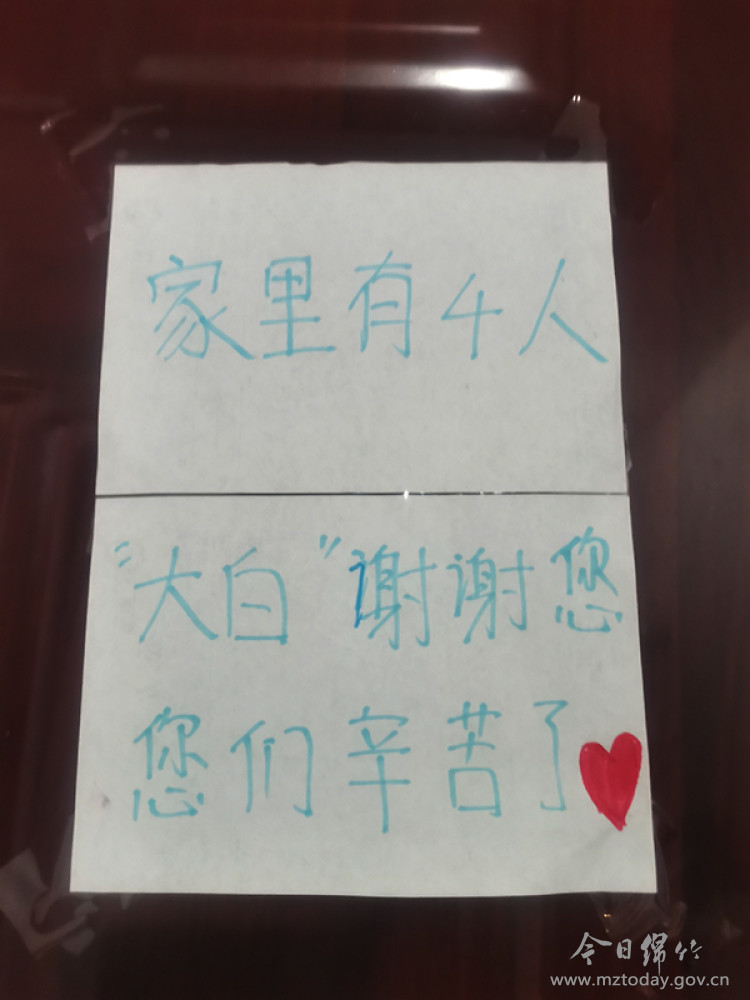 家里有4人
“大白”谢谢您
您们辛苦了
今日绵竹
www.mztoday.gov.cn